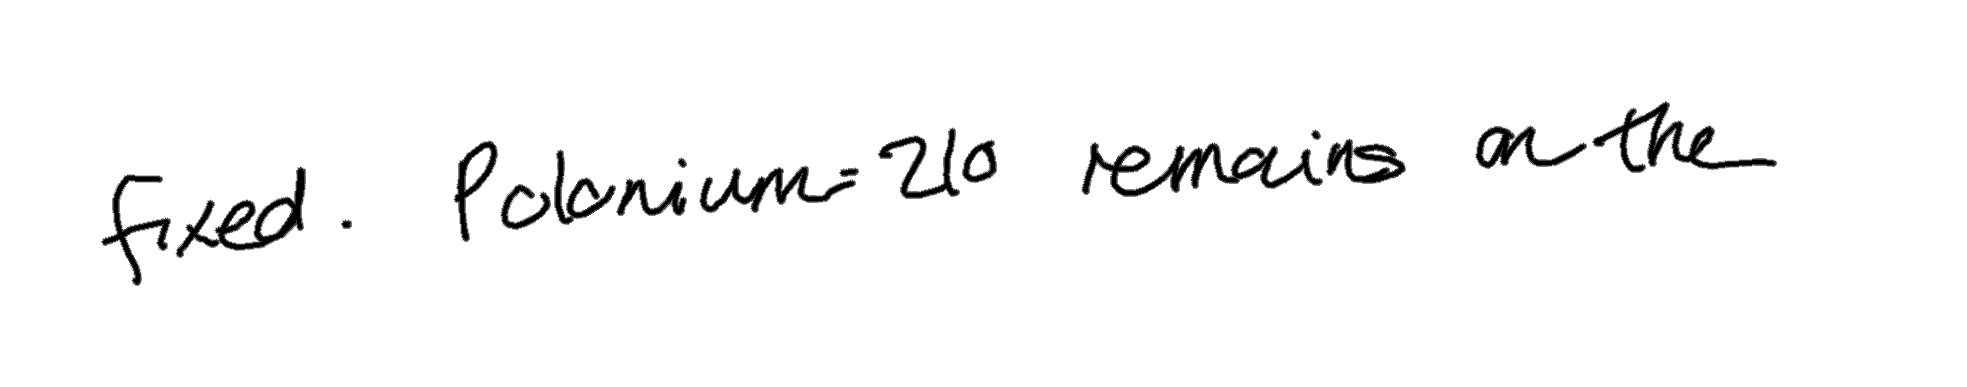 fixed. Polonium=210 remains on the